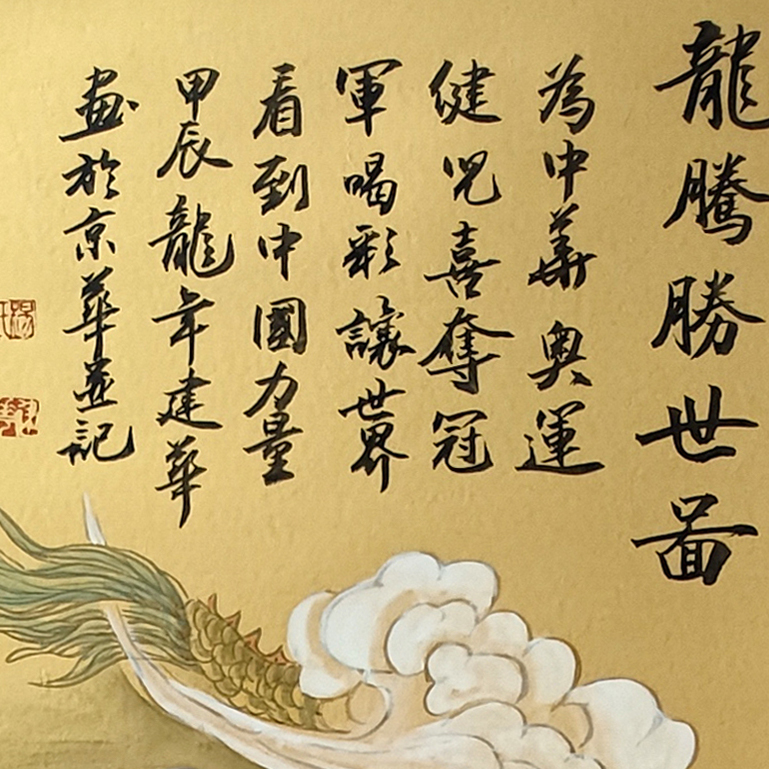 龍騰勝世啚
為中華奧運
健児喜奪冠
軍喝彩讓世界
看到中國力量
甲辰龍年建華
畫於京華並記